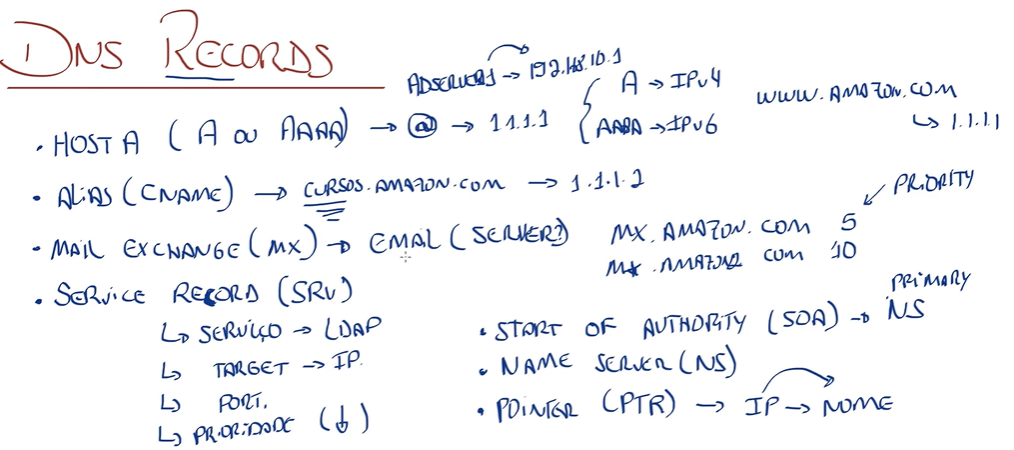 DNS RECORDS
ADSERVER1 → 192.168.10.1
• HOST A (A OU AAAA) → @ → 1.1.1.1
A → IPv4
AAAA → IPv6
WWW.AMAZON.COM
↳ 1.1.1.1
• ALIAS (CNAME) → CURSOS.AMAZON.COM → 1.1.1.2
PRIORITY
• MAIL EXCHANGE (MX) → EMAL (SERVER?)
MX.AMAZON.COM 5
MX.AMAZON2 COM 10
• SERVICE RECORD (SRV)
↳ SERVIÇO → LDAP
↳ TARGET → IP.
↳ PORT.
↳ PRIORIDADE (↓)
PRIMARY
• START OF AUTHORITY (SOA) → NS
• NAME SERVER (NS)
• POINTER (PTR) → IP → NOME